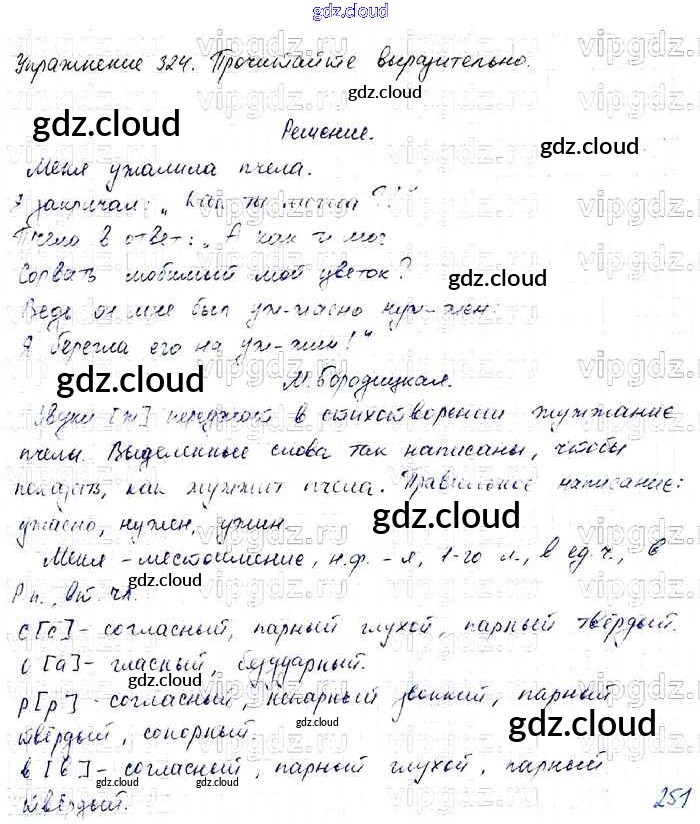 gdz.cloud
Упражнение 324. Прочитайте выразительно.
Решение.
Меня ужалила пчела.
Я закричал: „Как ты могла?!“
Пчела в ответ: „А как ты мог
Сорвать любимый мой цветок?
Ведь он мне был уж-жасно нуж-жен:
Я берегла его на уж-жин!“
М. Бородицкая.
Звуки [ж] передают в стихотворении жужжание
пчелы. Выделенные слова так написаны, чтобы
показать, как жужжит пчела. Правильное написание:
ужасно, нужен, ужин.
Меня - местоимение, н.ф. - я, 1-го л., в ед.ч., в
Р.п., вт. чл.
с [с] - согласный, парный глухой, парный твёрдый.
о [а] - гласный, безударный.
р [р] - согласный, непарный звонкий, парный
твёрдый, сонорный.
в [в] - согласный, парный глухой, парный
твёрдый.
251